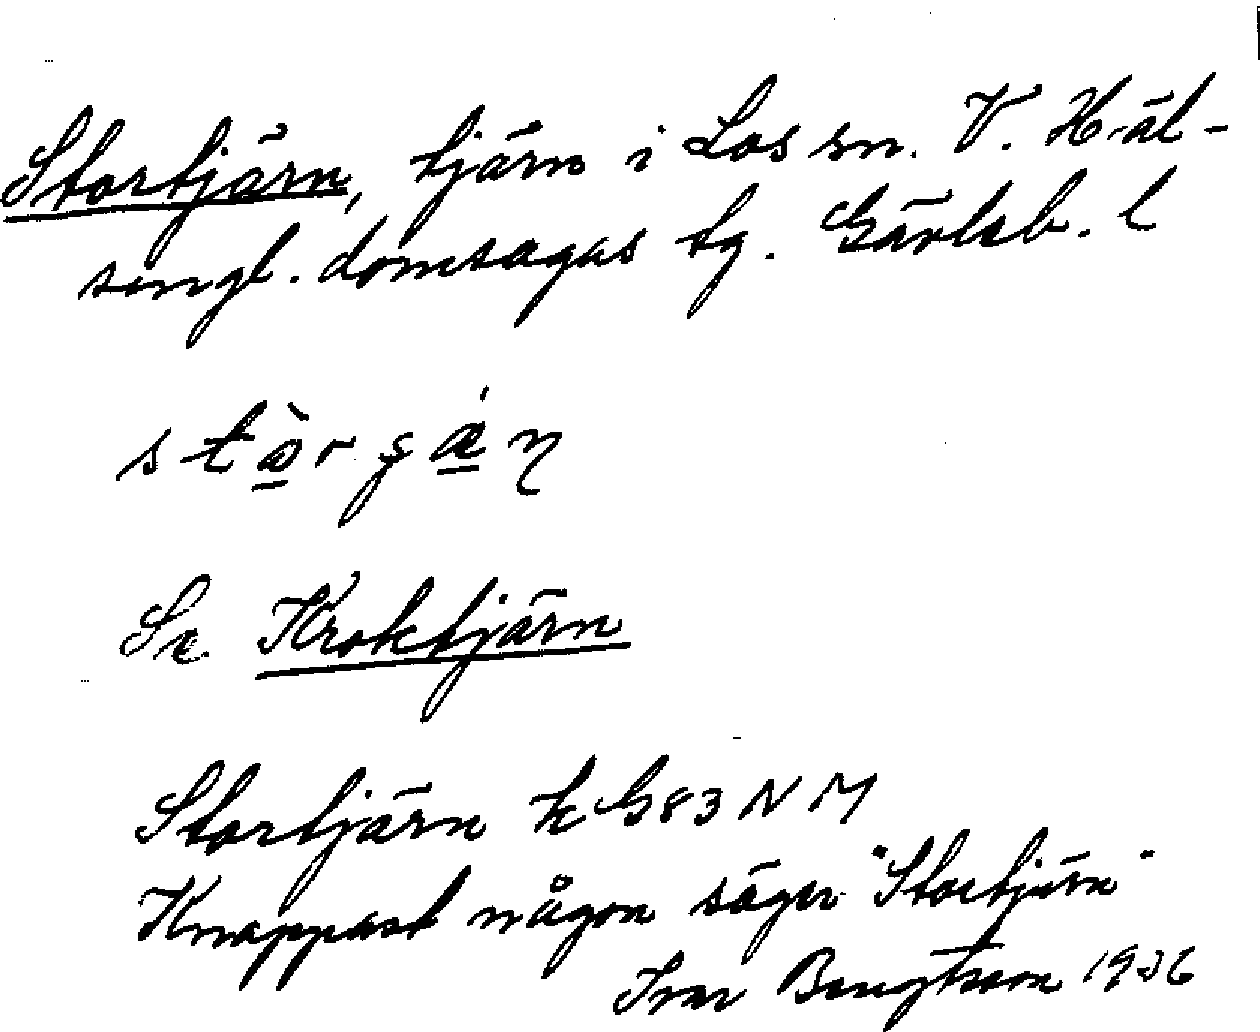 Stortjärn, tjärn i Los sn. V. Häl-
singl. domsagas tg. Gävleb. l
Se Kroktjärn
Stortjärn k G83 NM
Knappast någon säger "Stortjärn"
Ivar Bengtsson 1936